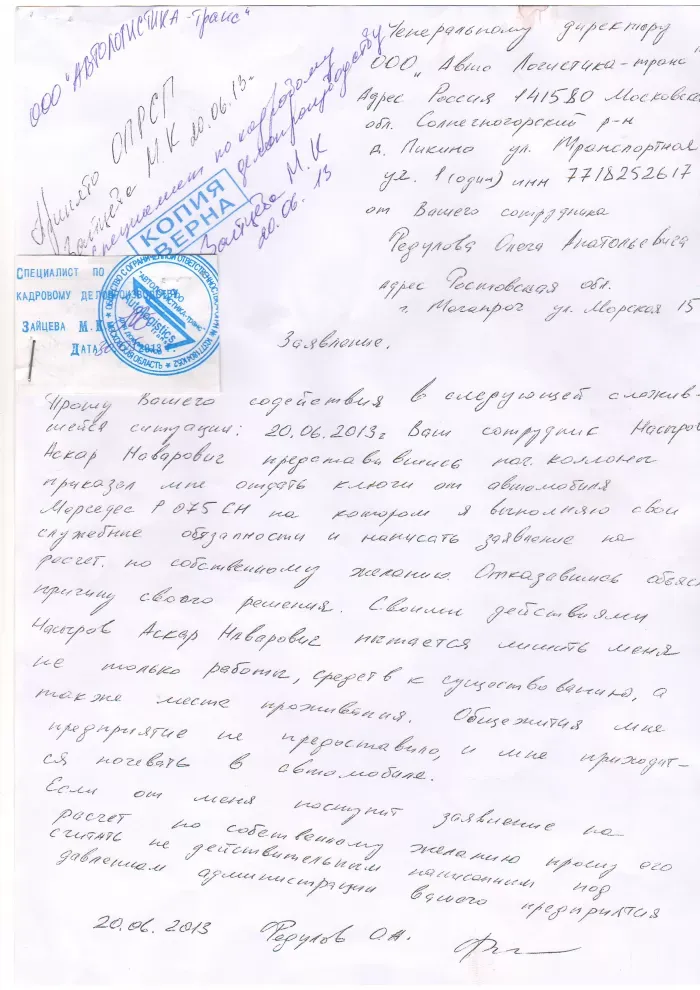 ООО "АВТОЛОГИСТИКА-Транс"
Принято ОПРСП
Зайцева М.К 20.06.13г
специалист по кадровому
делопроизводству
Зайцева М.К
20.06.13
КОПИЯ
ВЕРНА
СПЕЦИАЛИСТ ПО
КАДРОВОМУ ДЕЛОПРОИЗВОДСТВУ
ЗАЙЦЕВА М.К
ДАТА 2013
ОБЩЕСТВО С ОГРАНИЧЕННОЙ ОТВЕТСТВЕННОСТЬЮ
"АВТОЛОГИСТИКА-ТРАНС"
Autologistics
МОСКОВСКАЯ ОБЛАСТЬ
Генеральному директору
ООО "Авто Логистика-транс"
Адрес Россия 141580 Московская
обл. Солнечногорский р-н
д. Пикино ул. Транспортная
ул. 1 (один) инн 7718252617
от Вашего сотрудника
Федулова Олега Анатольевича
адрес Ростовская обл.
г. Тоганрог ул. Морская 15
Заявление.
Прошу Вашего содействия в следующей сложив-
шейся ситуации: 20.06.2013г Ваш сотрудник Насыров
Аскар Наварович представившись нач. коллоны
приказал мне отдать ключи от автомобиля
Мерседес Р 075 СН на котором я выполняю свои
служебные обязалности и написать заявление на
расчет. по собственному желанию. Отказавшись обьяс
причину своего решения. Своими действиями
Насыров Аскар Наварович пытается лишить меня
не только работы, средств к существованию, а
также места проживания. Общежития мне
предприятие не предоставило, и мне приходит-
ся ночевать в автомобиле.
Если от меня поступит заявление на
расчет по собственному желанию прошу его
считать не действительным написанным под
давлением администрации вашего предприятия
20.06.2013 Федулов О.А.